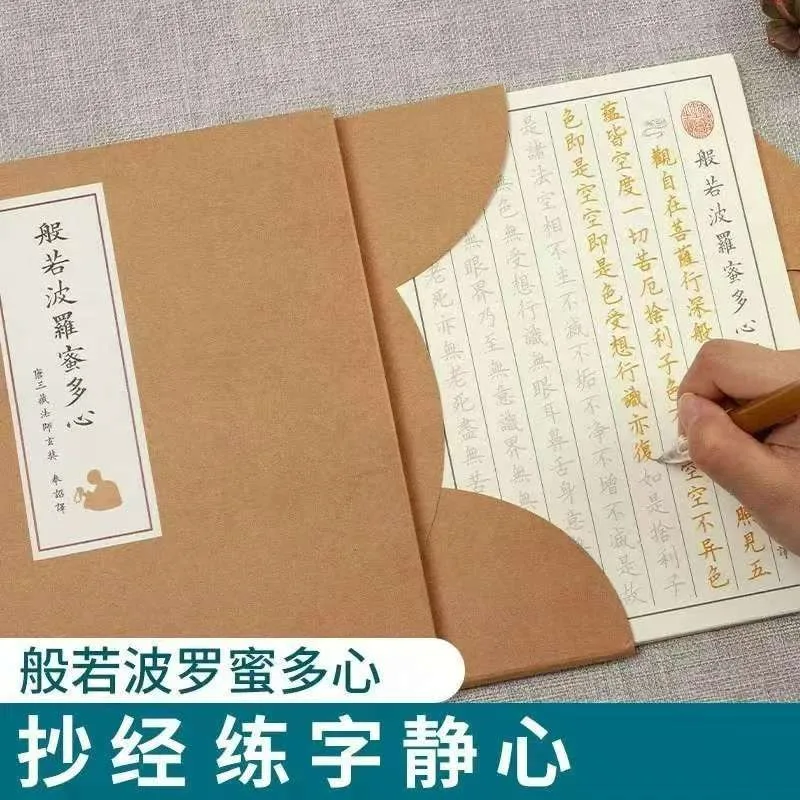 般若波羅蜜多心
唐三藏法師玄奘 奉詔譯
般若波羅蜜多心
觀自在菩薩行深般 照見五
蘊皆空度一切苦厄捨利子色 空空不异色
色即是空空即是色受想行識亦復如是捨利子
是諸法空相不生不滅不垢不淨不增不減是故
色無受想行識無眼耳鼻舌身意
無眼界乃至無意識界無
老死亦無老死盡無苦
般若波罗蜜多心
抄经 练字静心